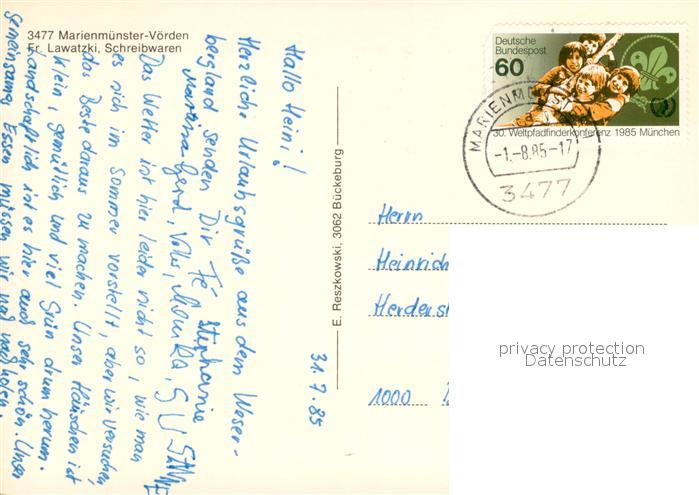 3477 Marienmünster-Vörden
Fr. Lawatzki, Schreibwaren
Hallo Heini!
Herzliche Urlaubsgrüße aus dem Weser-
bergland senden Dir Fé Stephanie
Martina Gerd, Volker, Monika, SUSANNE
Das Wetter ist hier leider nicht so, wie man
es sich im Sommer vorstellt, aber wir versuchen
das Beste daraus zu machen. Unser Häuschen ist
klein, gemütlich und viel Grün drum herum.
Landschaftlich ist es hier auch sehr schön. Unser
gemeinsames Essen müssen wir mal nachholen.
31.7.85
E. Reszkowski, 3062 Bückeburg
Deutsche
Bundespost
60
30. Weltpfadfinderkonferenz 1985 München
MARIENM
-1.-8.85-17
3477
Herrn
Heinrich
Herderst
1000
privacy protection
Datenschutz